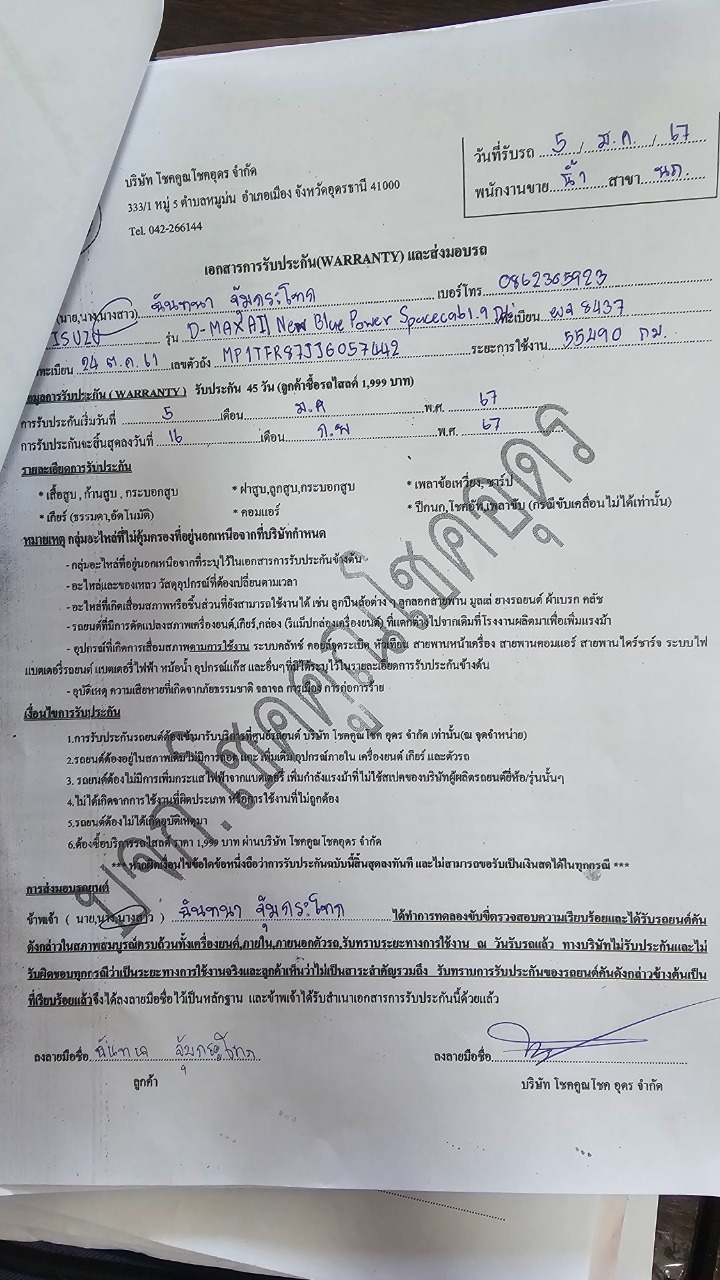 วันที่รับรถ 5 / ม.ค. / 67
บริษัท โชคคูณโชคอุดร จำกัด
พนักงานขาย น้ำ สาขา นภ.
333/1 หมู่ 5 ตำบลหมูม่น อำเภอเมือง จังหวัดอุดรธานี 41000
Tel. 042-266144
เอกสารการรับประกัน(WARRANTY) และส่งมอบรถ
(นาย,นาง,นางสาว) ฉันทนา จุ้มกระโทก เบอร์โทร 0862365923
ISUZU รุ่น D-MAX All New Blue Power Spacecab 1.9 ทะเบียน 8437
ทะเบียน 24 ต.ค. 61 เลขตัวถัง MP1TFR87JJG057442 ระยะการใช้งาน 55490 กม.
ข้อมูลการรับประกัน ( WARRANTY ) รับประกัน 45 วัน (ลูกค้าซื้อรถไสลด์ 1,999 บาท)
การรับประกันเริ่มวันที่ 5 เดือน ม.ค พ.ศ. 67
การรับประกันจะสิ้นสุดลงวันที่ 16 เดือน ก.พ พ.ศ. 67
รายละเอียดการรับประกัน
* เสื้อสูบ , ก้านสูบ , กระบอกสูบ * ฝาสูบ,ลูกสูบ,กระบอกสูบ * เพลาข้อเหวี่ยง, ชาร์ป
* เกียร์ (ธรรมดา,อัตโนมัติ) * คอมแอร์ * ปีกนก,โช๊คอัพ,เพลาขับ (กรณีขับเคลื่อนไม่ได้เท่านั้น)
หมายเหตุ กลุ่มอะไหล่ที่ไม่คุ้มครองที่อยู่นอกเหนือจากที่บริษัทกำหนด
- กลุ่มอะไหล่ที่อยู่นอกเหนือจากที่ระบุไว้ในเอกสารการรับประกันข้างต้น
- อะไหล่และของเหลว วัสดุอุปกรณ์ที่ต้องเปลี่ยนตามเวลา
- อะไหล่ที่เกิดเสื่อมสภาพหรือชิ้นส่วนที่ยังสามารถใช้งานได้ เช่น ลูกปืนล้อต่าง ๆ ลูกลอกสายพาน มูเลย์ ยางรถยนต์ ผ้าเบรก คลัช
- รถยนต์ที่มีการดัดแปลงสภาพเครื่องยนต์,เกียร์,กล่อง (รีแม็ปกล่องเครื่องยนต์) ที่แตกต่างไปจากเดิมที่โรงงานผลิตมาเพื่อเพิ่มแรงม้า
- อุปกรณ์ที่เกิดการเสื่อมสภาพตามการใช้งาน ระบบคลัทช์ คอยล์จุดระเบิด หัวเทียน สายพานหน้าเครื่อง สายพานคอมแอร์ สายพานไดร์ชาร์จ ระบบไฟ
แบตเตอรี่รถยนต์ แบตเตอรี่ไฟฟ้า หม้อน้ำ อุปกรณ์แก๊ส และอื่นๆที่มิได้ระบุไว้ในรายละเอียดการรับประกันข้างต้น
- อุบัติเหตุ ความเสียหายที่เกิดจากภัยธรรมชาติ จลาจล การเมือง การก่อการร้าย
เงื่อนไขการรับประกัน
1.การรับประกันรถยนต์ต้องเข้ามารับบริการที่ศูนย์รถยนต์ บริษัท โชคคูณโชค อุดร จำกัด เท่านั้น(ณ จุดจำหน่าย)
2.รถยนต์ต้องอยู่ในสภาพเดิมไม่มีการถอด แกะ เพิ่มเติมอุปกรณ์ภายใน เครื่องยนต์ เกียร์ และตัวรถ
3. รถยนต์ต้องไม่มีการเพิ่มกระแสไฟฟ้าจากแบตเตอรี่ เพิ่มกำลังแรงม้าที่ไม่ใช้สเปคของบริษัทผู้ผลิตรถยนต์ยี่ห้อ/รุ่นนั้นๆ
4.ไม่ได้เกิดจากการใช้งานที่ผิดประเภท หรือการใช้งานที่ไม่ถูกต้อง
5.รถยนต์ต้องไม่ได้เกิดอุบัติเหตุมา
6.ต้องซื้อบริการรถไสลด์ ราคา 1,999 บาท ผ่านบริษัท โชคคูณโชคอุดร จำกัด
*** หากผิดเงื่อนไขข้อใดข้อหนึ่งถือว่าการรับประกันฉบับนี้สิ้นสุดลงทันที และไม่สามารถขอรับเป็นเงินสดได้ในทุกกรณี ***
การส่งมอบรถยนต์
ข้าพเจ้า ( นาย,นาง,นางสาว ) ฉันทนา จุ้มกระโทก ได้ทำการทดลองขับขี่ตรวจสอบความเรียบร้อยและได้รับรถยนต์คัน
ดังกล่าวในสภาพสมบูรณ์ครบถ้วนทั้งเครื่องยนต์,ภายใน,ภายนอกตัวรถ,รับทราบระยะทางการใช้งาน ณ วันรับรถแล้ว ทางบริษัทไม่รับประกันและไม่
รับผิดชอบทุกกรณีว่าเป็นระยะทางการใช้งานจริงและลูกค้าเห็นว่าไม่เป็นสาระสำคัญรวมถึง รับทราบการรับประกันของรถยนต์คันดังกล่าวข้างต้นเป็น
ที่เรียบร้อยแล้วจึงได้ลงลายมือชื่อไว้เป็นหลักฐาน และข้าพเจ้าได้รับสำเนาเอกสารการรับประกันนี้ด้วยแล้ว
ลงลายมือชื่อ ฉันทนา จุ้มกระโทก ลงลายมือชื่อ
ลูกค้า บริษัท โชคคูณโชค อุดร จำกัด
บจก.โชคคูณโชคอุดร